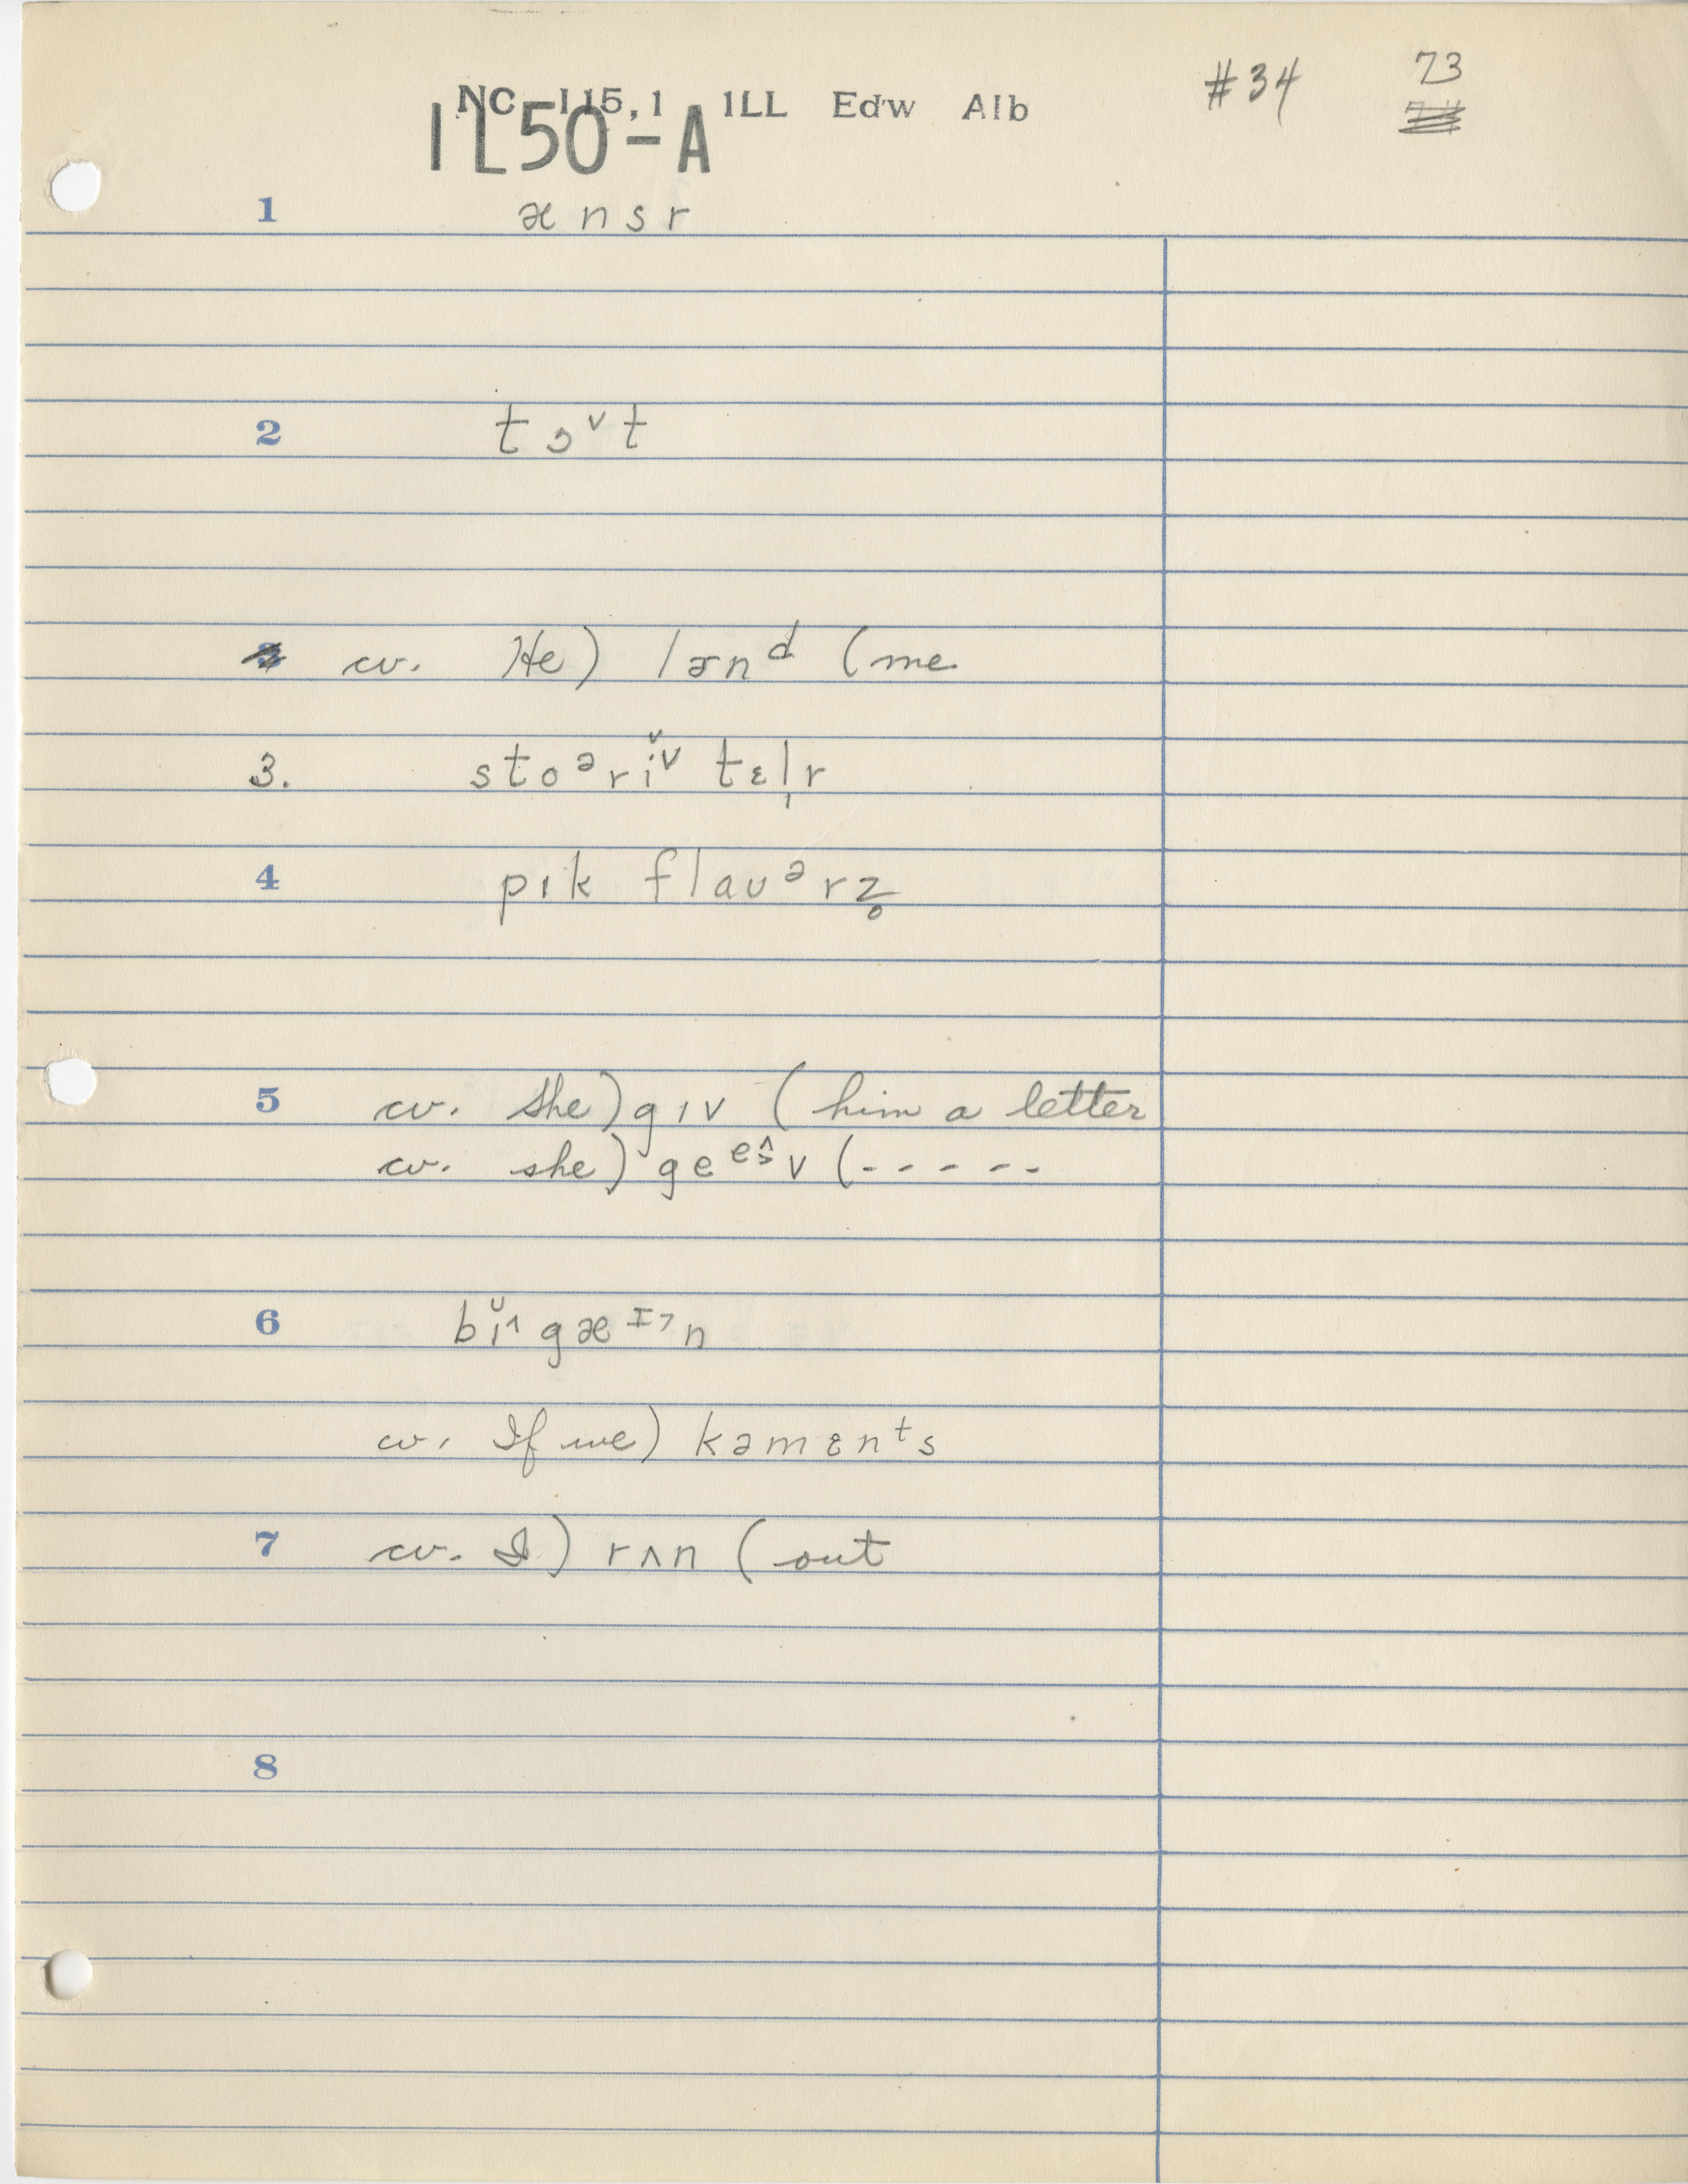 NC 115,1 ILL Edw Alb #34 73
IL50-A
1 ænsr
2 tɔᵛt
cv. He) lɚnᵈ (me
3. stoᵊrĭᵛ tɛl̩r
4 pɪk flauᵊrz̥
5 cv. She) gɪv (him a letter
cv. she) geᵉ^>v (- - - - -
6 bĭ^ gæᴵ>n
cv. If we) kəmɛnᵗs
7 cv. I) rʌn (out
8